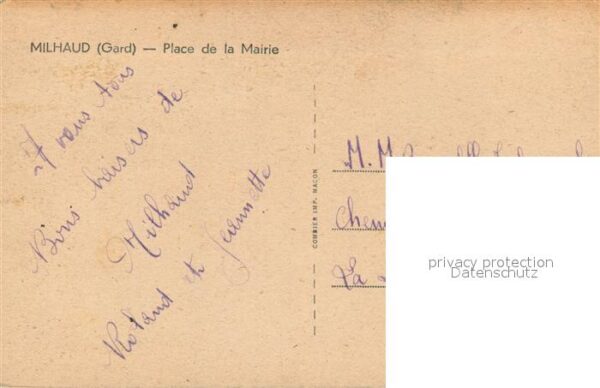 MILHAUD (Gard) — Place de la Mairie
A vous tous
Bons baisers de
Milhaud
Roland et Jeannette
COMBIER IMP. MACON
M. M
Chem
La
privacy protection
Datenschutz